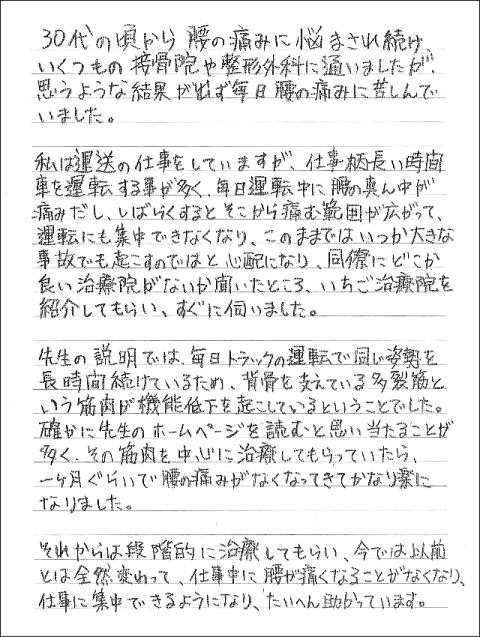 30代の頃から 腰の痛みに悩まされ続け、
いくつもの接骨院や整形外科に通いましたが、
思うような結果が出ず毎日腰の痛みに苦しんで
いました。
私は運送の仕事をしていますが、仕事柄長い時間
車を運転する事が多く、毎日運転中に腰の真ん中が
痛みだし、しばらくするとそこから痛む範囲が広がって、
運転にも集中できなくなり、このままではいつか大きな
事故でも起こすのではと心配になり、同僚にどこか
良い治療院がないか聞いたところ、いちご治療院を
紹介してもらい、すぐに伺いました。
先生の説明では、毎日トラックの運転で同じ姿勢を
長時間続けているため、背骨を支えている多裂筋と
いう筋肉が機能低下を起こしているということでした。
確かに先生のホームページを読むと思い当たることが
多く、その筋肉を中心に治療してもらっていたら、
一ヶ月ぐらいで腰の痛みがなくなってきてかなり楽に
なりました。
それからは段階的に治療してもらい、今では以前
とは全然変わって、仕事中に腰が痛くなることがなくなり、
仕事に集中できるようになり、たいへん助かっています。